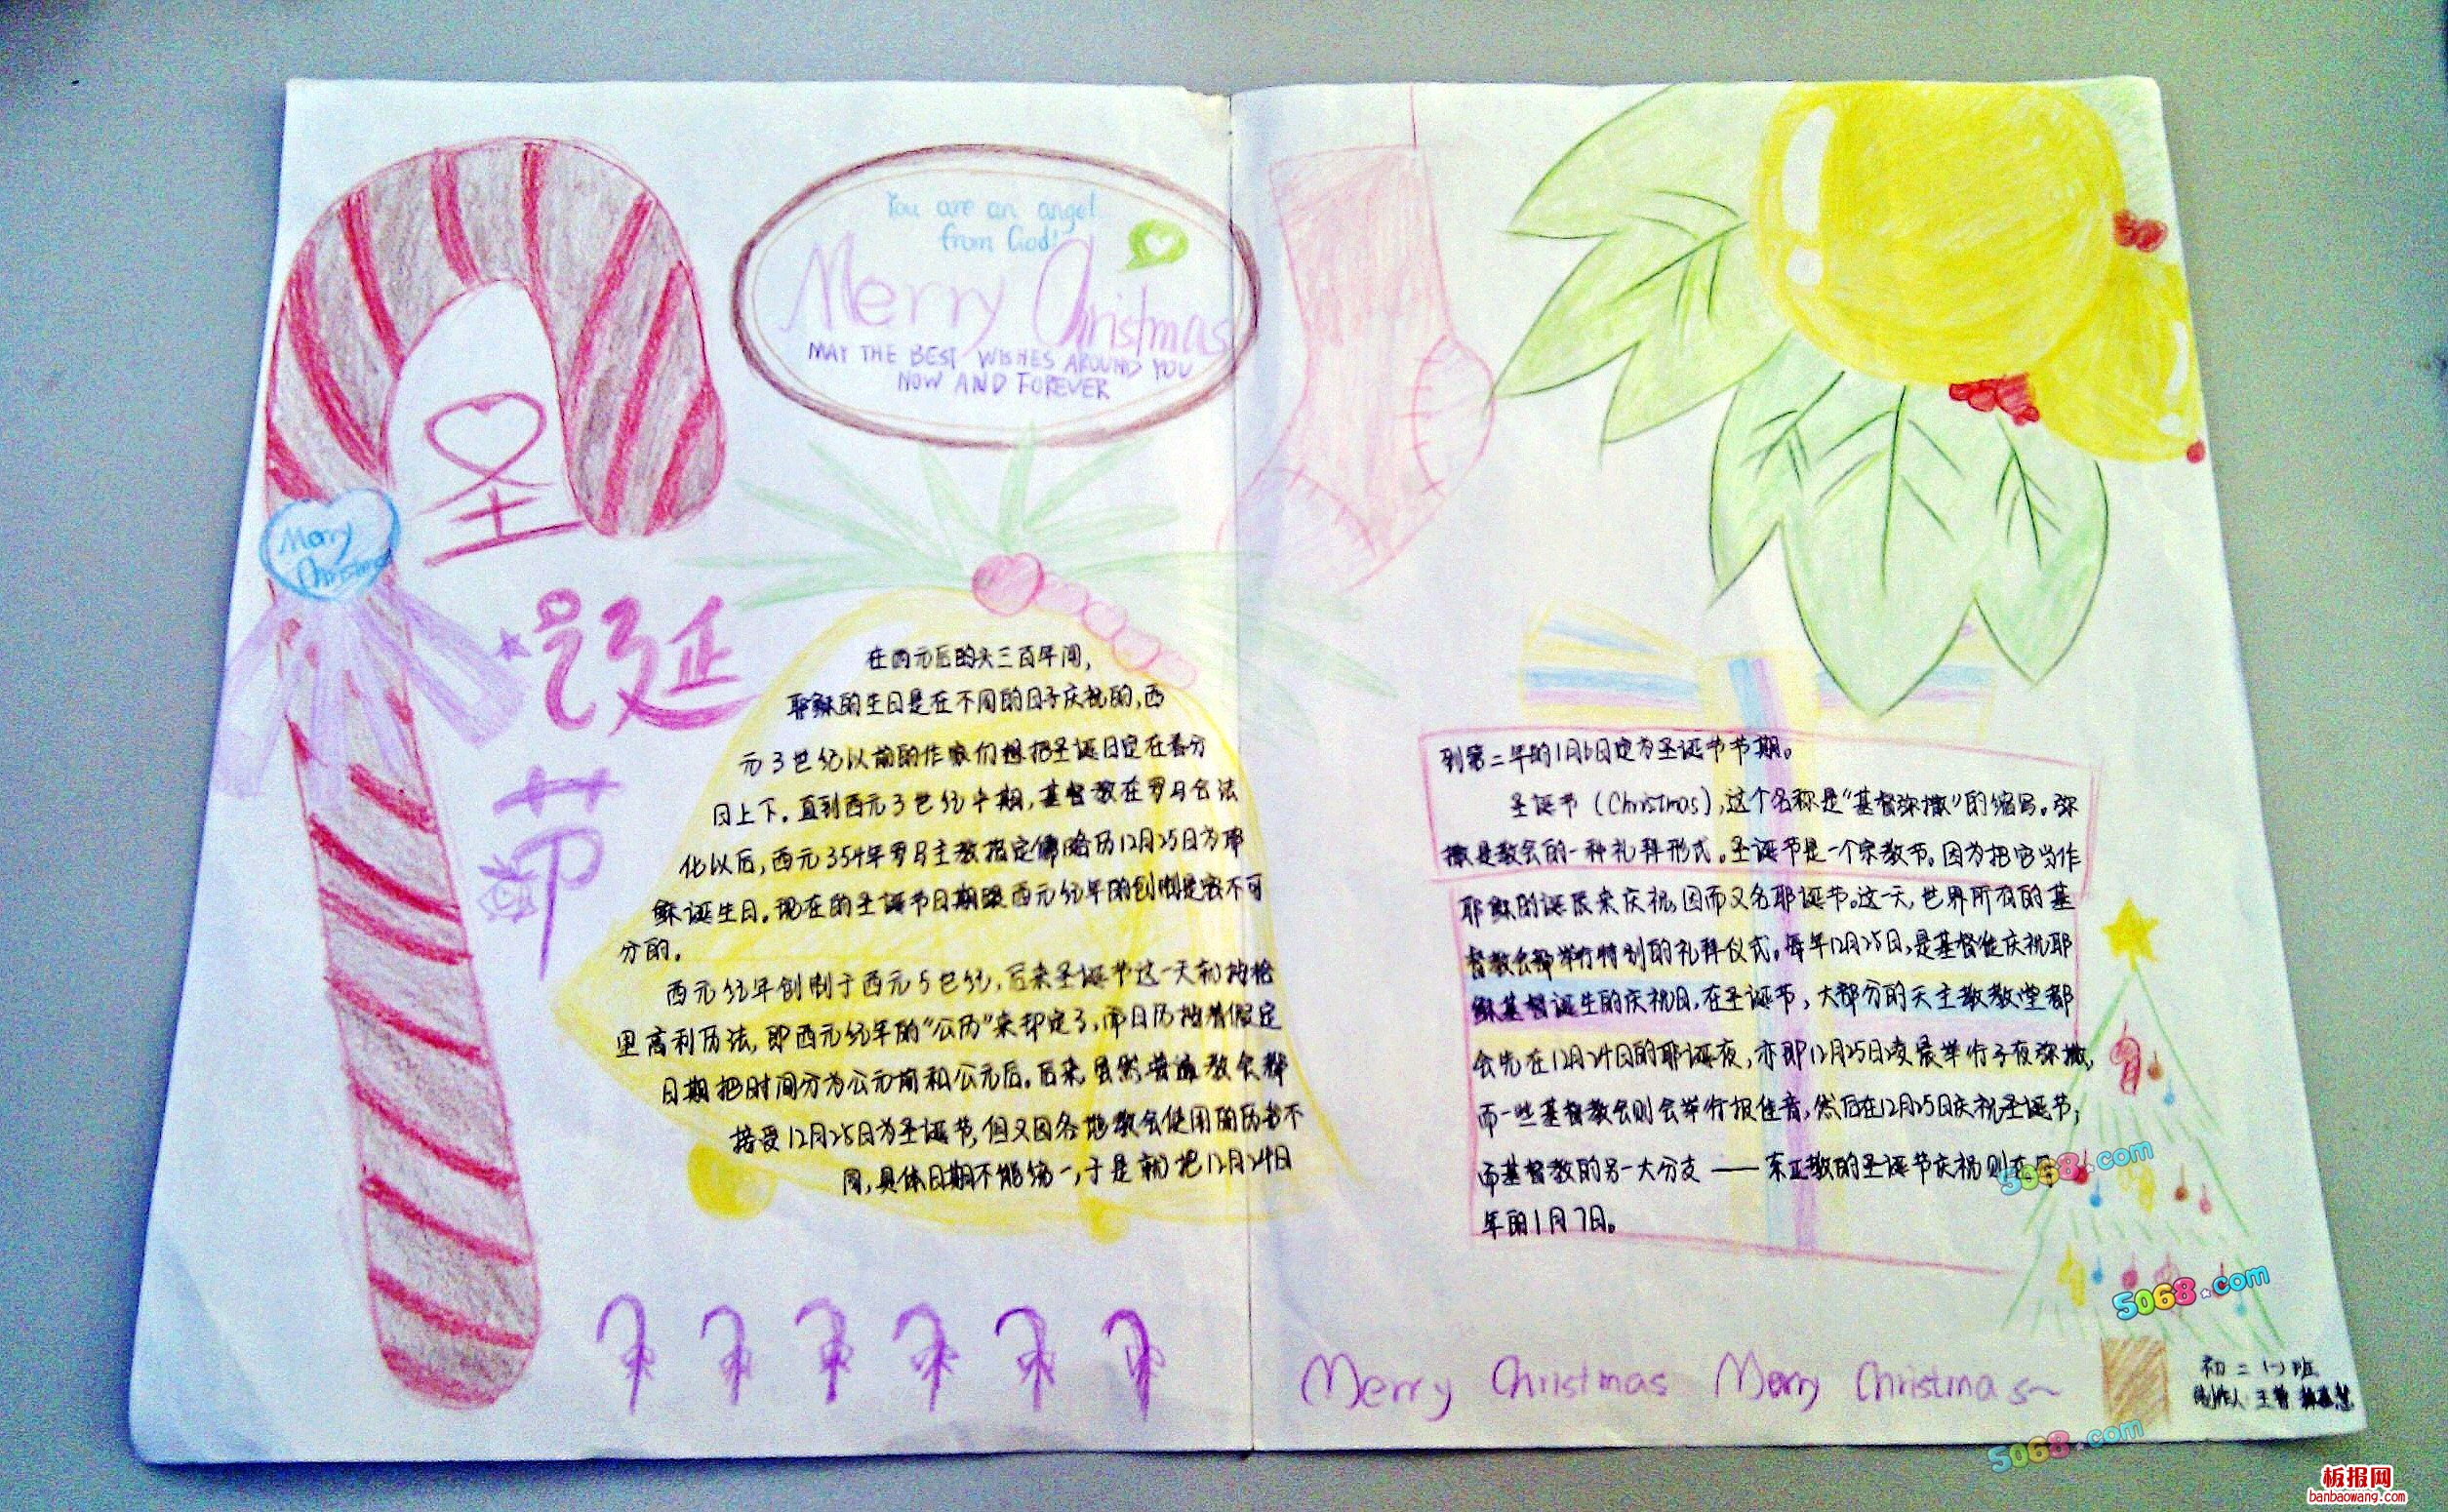 You are an angel
from God!
Merry Christmas
MAY THE BEST WISHES AROUND YOU
NOW AND FOREVER
圣
诞
节
Merry
Christmas
在西元后的头三百年间，
耶稣的生日是在不同的日子庆祝的，西
元3世纪以前的作家们想把圣诞日定在春分
日上下。直到西元3世纪中期，基督教在罗马合法
化以后，西元354年罗马主教指定儒略历12月25日为耶
稣诞生日。现在的圣诞节日期跟西元纪年的创制是密不可
分的。
西元纪年创制于西元5世纪，后来圣诞节这一天就按格
里高利历法，即西元纪年的“公历”来却定了，而日历按着假定
日期把时间分为公元前和公元后。后来，虽然普遍教会都
接受12月25日为圣诞节，但又因各地教会使用的历书不
同，具体日期不能统一，于是就把12月24日
到第二年的1月6日定为圣诞节节期。
圣诞节（Christmas），这个名称是“基督弥撒”的缩写。弥
撒是教会的一种礼拜形式。圣诞节是一个宗教节。因为把它当作
耶稣的诞辰来庆祝，因而又名耶诞节。这一天，世界所有的基
督教会都举行特别的礼拜仪式。每年12月25日，是基督徒庆祝耶
稣基督诞生的庆祝日，在圣诞节，大部分的天主教教堂都
会先在12月24日的耶诞夜，亦即12月25日凌晨举行子夜弥撒，
而一些基督教会则会举行报佳音，然后在12月25日庆祝圣诞节；
而基督教的另一大分支——东正教的圣诞节庆祝则在
年的1月7日。
Merry Christmas Merry Christmas~
初二(一)班
制作人 王
5068.com
5068.com
5068.com
板报网
banbaowang.com